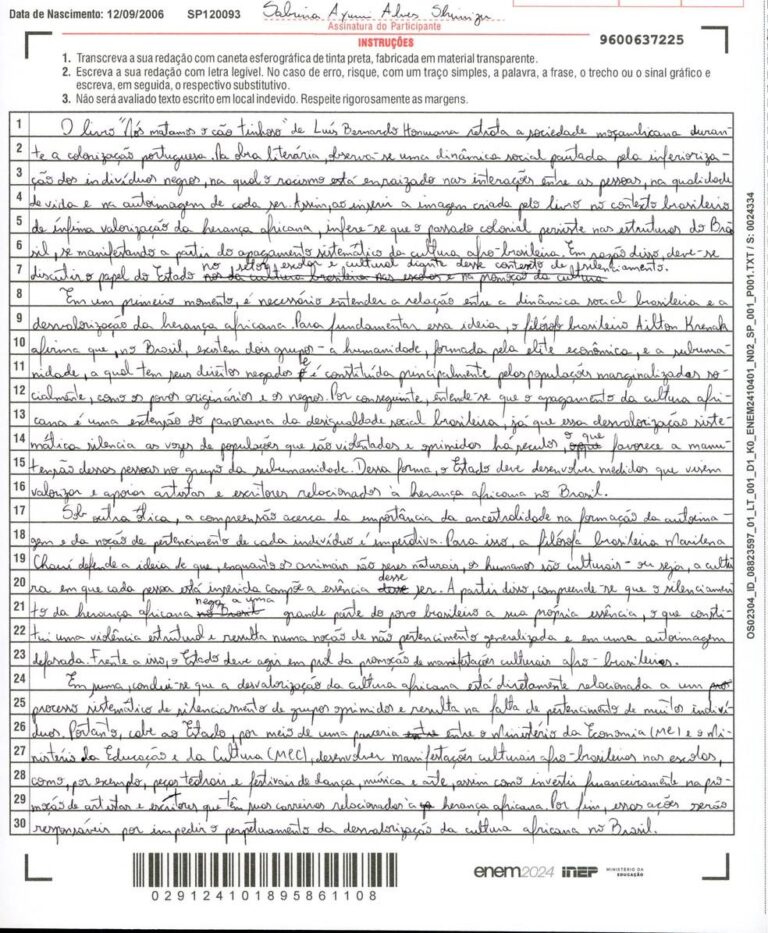 Data de Nascimento: 12/09/2006 SP120093 Sabrina Ayumi Alves Shimizu
Assinatura do Participante
INSTRUÇÕES
9600637225
1. Transcreva a sua redação com caneta esferográfica de tinta preta, fabricada em material transparente.
2. Escreva a sua redação com letra legível. No caso de erro, risque, com um traço simples, a palavra, a frase, o trecho ou o sinal gráfico e
escreva, em seguida, o respectivo substitutivo.
3. Não será avaliado texto escrito em local indevido. Respeite rigorosamente as margens.
1 O livro "Nós matamos o cão tinhoso" de Luís Bernardo Honwana retrata a sociedade moçambicana duran-
2 te a colonização portuguesa. Na obra literária, observa-se uma dinâmica social pautada pela inferioriza-
3 ção dos indivíduos negros, na qual o racismo está enraizado nas interações entre as pessoas, na qualidade
4 de vida e na autoimagem de cada ser. Assim, ao inserir a imagem criada pelo livro no contexto brasileiro
5 de ínfima valorização da herança africana, infere-se que o passado colonial persiste nas estruturas do Bra-
6 sil, se manifestando a partir do apagamento sistemático da cultura afro-brasileira. Em razão disso, deve-se
7 discutir o papel do Estado no setor escolar e cultural diante desse contexto de silenciamento.
8 Em um primeiro momento, é necessário entender a relação entre a dinâmica social brasileira e a
9 desvalorização da herança africana. Para fundamentar essa ideia, o filósofo brasileiro Ailton Krenak
10 afirma que, no Brasil, existem dois grupos - a humanidade, formada pela elite econômica, e a subuma-
11 nidade, a qual tem seus direitos negados e é constituída principalmente pelas populações marginalizadas so-
12 cialmente, como os povos originários e os negros. Por conseguinte, entende-se que o apagamento da cultura afri-
13 cana é uma extensão do panorama da desigualdade social brasileira, já que essa desvalorização siste-
14 mática silencia as vozes de populações que são violentadas e oprimidas há séculos, o que favorece a manu-
15 tenção dessas pessoas no grupo da subumanidade. Dessa forma, o Estado deve desenvolver medidas que visem
16 valorizar e apoiar artistas e escritores relacionados à herança africana no Brasil.
17 Sob outra ótica, a compreensão acerca da importância da ancestralidade na formação da autoima-
18 gem e da noção de pertencimento de cada indivíduo é imperativa. Para isso, a filósofa brasileira Marilena
19 Chauí defende a ideia de que, enquanto os animais são seres naturais, os humanos são culturais - ou seja, a cultu-
20 ra em que cada pessoa está inserida compõe a essência desse ser. A partir disso, compreende-se que o silenciamen-
21 to da herança africana nega a uma grande parte do povo brasileiro a sua própria essência, o que consti-
22 tui uma violência estrutural e resulta numa noção de não pertencimento generalizada e em uma autoimagem
23 defasada. Frente a isso, o Estado deve agir em prol da promoção de manifestações culturais afro-brasileiras.
24 Em suma, conclui-se que a desvalorização da cultura africana está diretamente relacionada a um
25 processo sistemático de silenciamento de grupos oprimidos e resulta na falta de pertencimento de muitos indiví-
26 duos. Portanto, cabe ao Estado, por meio de uma parceria entre o Ministério da Economia (ME) e o Mi-
27 nistério da Educação e da Cultura (MEC), desenvolver manifestações culturais afro-brasileiras nas escolas,
28 como, por exemplo, peças teatrais e festivais de dança, música e arte, assim como investir financeiramente na pro-
29 moção de artistas e escritores que têm suas carreiras relacionadas à herança africana. Por fim, essas ações serão
30 responsáveis por impedir o perpetuamento da desvalorização da cultura africana no Brasil.
029124101895861108
enem2024 inep MINISTÉRIO DA EDUCAÇÃO
OS02304_ID_08823597_01_LT_001_D1_K0_ENEM2410401_N02_SP_001_P001.TXT / S: 0024334